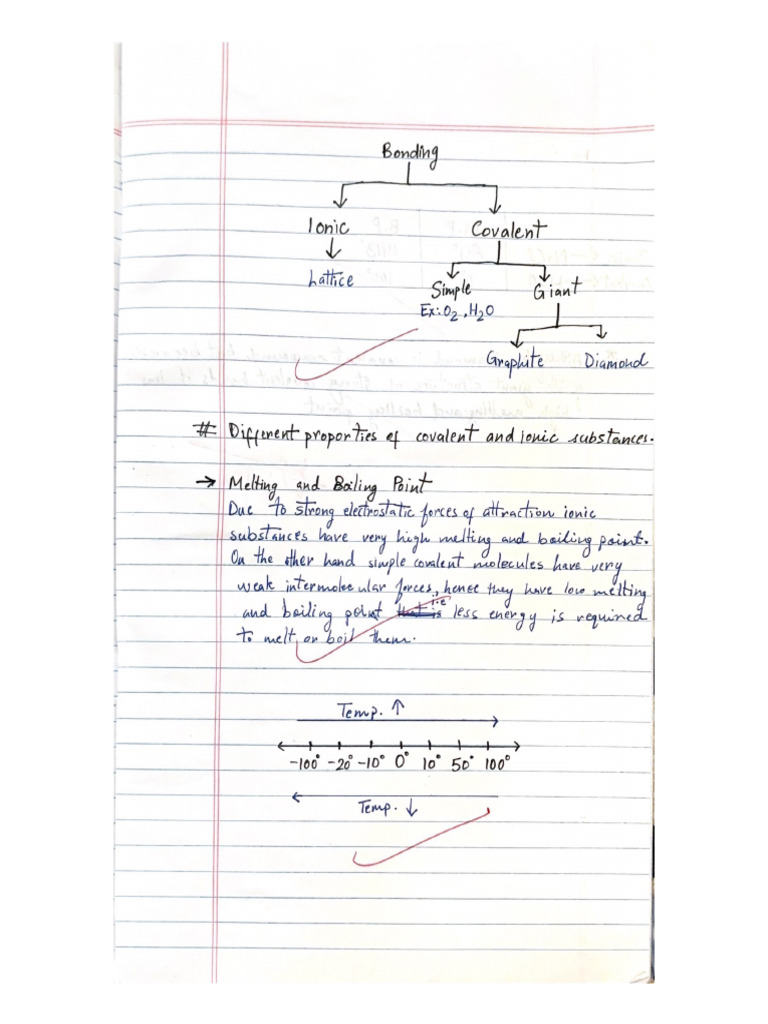 Bonding
Ionic Covalent
Lattice Simple Giant
Ex: O2, H2O
Graphite Diamond
# Different proporties of covalent and ionic substances.
→ Melting and Boiling Point
Due to strong electrostatic forces of attraction ionic
substances have very high melting and boiling point.
On the other hand simple covalent molecules have very
weak intermolecular forces, hence they have low melting
and boiling point i.e less energy is required
to melt or boil them.
Temp. ↑
-100° -20° -10° 0° 10° 50° 100°
Temp. ↓